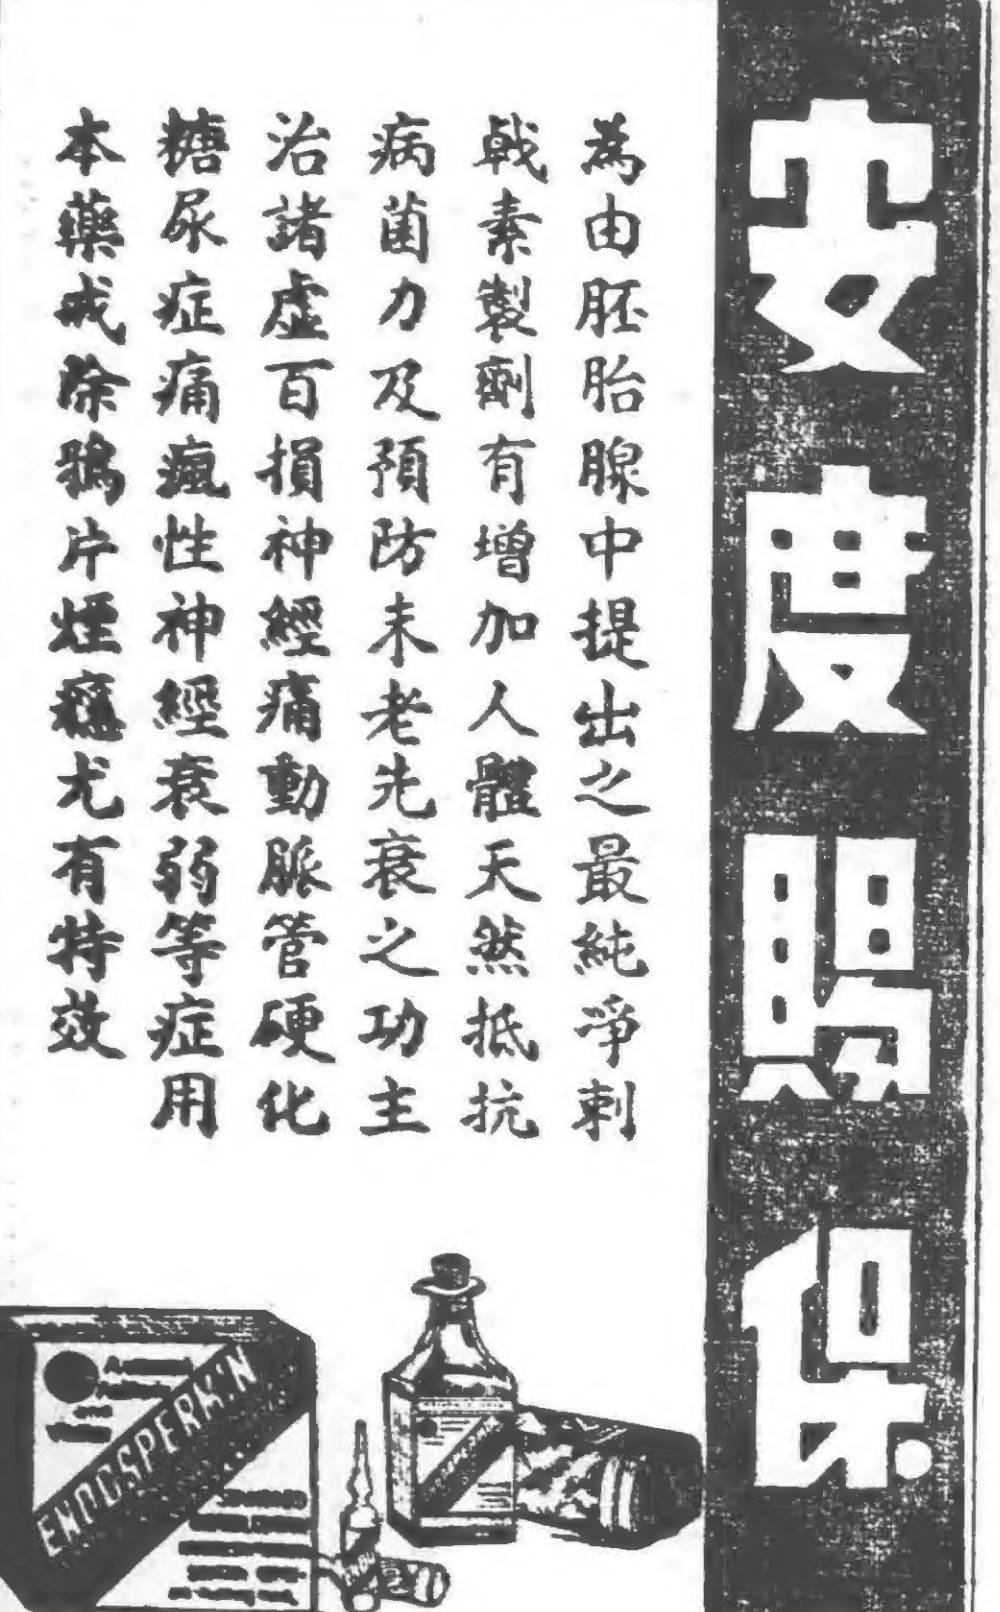 安度賜保
為由胚胎腺中提出之最純淨刺
戟素製劑有增加人體天然抵抗
病菌力及預防未老先衰之功主
治諸虛百損神經痛動脈管硬化
糖尿症痛瘋性神經衰弱等症用
本藥戒除鴉片煙癮尤有特效
ENDOSPERMIN